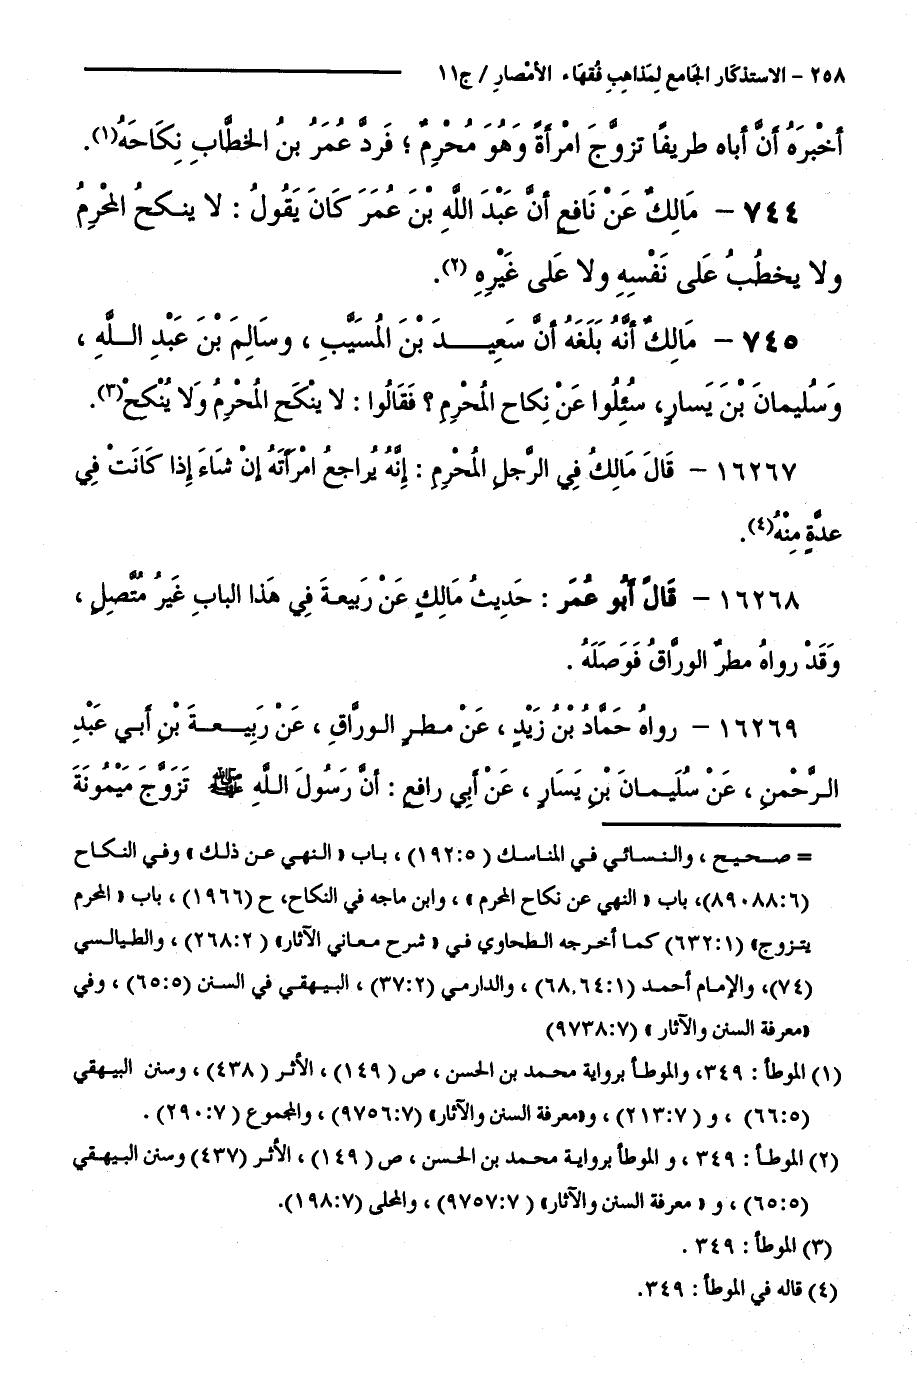 ٢٥٨ - الاستذكار الجامع لمذاهب فقهاء الأمصار / ج١١
أخْبرَهُ أنَّ أباه طريفًا تزوَّجَ امْرأةً وَهُوَ مُحْرِمٌ ؛ فَردَّ عُمَرُ بنُ الخطَّابِ نِكَاحَهُ(١).
٧٤٤ - مَالِكٌ عَنْ نَافعٍ أنَّ عَبْدَ اللَّهِ بْنَ عُمَرَ كَانَ يَقُولُ : لا ينكحُ المْحْرِمُ
ولا يخطُبُ عَلى نَفْسِهِ ولا عَلى غَيْرِهِ (٢).
٧٤٥ - مَالِكٌ أنَّهُ بَلَغَهُ أنَّ سَعِيدَ بْنَ المُسَيَّبِ ، وسَالِمَ بْنَ عَبْدِ اللَّهِ ،
وَسُليمانَ بْنَ يَسارٍ، سئُلُوا عَنْ نِكاحِ المُحْرِمِ ؟ فَقَالُوا : لا ينْكَحِ المُحْرِمُ وَلا يُنْكحْ(٣).
١٦٢٦٧ - قَالَ مَالِكٌ فِي الرَّجلِ المُحْرِمِ : إنَّهُ يُراجعُ امْرأتَهُ إنْ شاءَ إذا كَانَتْ فِي
عدَّةٍ مِنْهُ(٤).
١٦٢٦٨ - قَالَ أبُو عُمَر : حَديثُ مَالكٍ عَنْ رَبيعةَ فِي هَذا البابِ غَيرُ مُتَّصلٍ ،
وَقَدْ رواهُ مطرٌ الورَّاقُ فَوَصَلَهُ .
١٦٢٦٩ - رواهُ حَمَّادُ بْنُ زَيْدٍ ، عَنْ مطرٍ الورَّاقِ ، عَنْ رَبِيعةَ بْنِ أبي عَبْدِ
الرَّحْمنِ ، عَنْ سُلَيمانَ بْنِ يَسَارٍ ، عَنْ أبِي رافعٍ : أنَّ رَسُولَ اللَّهِ ﷺ تَزَوَّجَ مَيْمُونَةَ
= صحيح ، والنسائي في المناسك ( ١٩٢:٥) ، باب « النهي عن ذلك » وفي النكاح
(٨٩٠٨٨:٦)، باب « النهي عن نكاح المحرم » ، وابن ماجه في النكاح، ح (١٩٦٦) ، باب « المحرم
يتزوج» (٦٣٢:١) كما أخرجه الطحاوي في « شرح معاني الآثار» ( ٢٦٨:٢) ، والطيالسي
(٧٤)، والإمام أحمد (٦٨,٦٤:١) ، والدارمي (٣٧:٢) ، البيهقي في السنن (٦٥:٥) ، وفي
«معرفة السنن والآثار » (٩٧٣٨:٧)
(١) الموطأ : ٣٤٩، والموطأ برواية محمد بن الحسن ، ص ( ١٤٩) ، الأثر ( ٤٣٨) ، وسنن البيهقي
(٦٦:٥) ، و ( ٢١٣:٧) ، و«معرفة السنن والآثار» (٩٧٥٦:٧) ، والمجموع ( ٢٩٠:٧) .
(٢) الموطأ : ٣٤٩ ، و الموطأ برواية محمد بن الحسن ، ص ( ١٤٩) ، الأثر (٤٣٧) وسنن البيهقي
(٦٥:٥) ، و « معرفة السنن والآثار» ( ٩٧٥٧:٧) ، والمحلى (١٩٨:٧).
(٣) الموطأ : ٣٤٩ .
(٤) قاله في الموطأ : ٣٤٩.